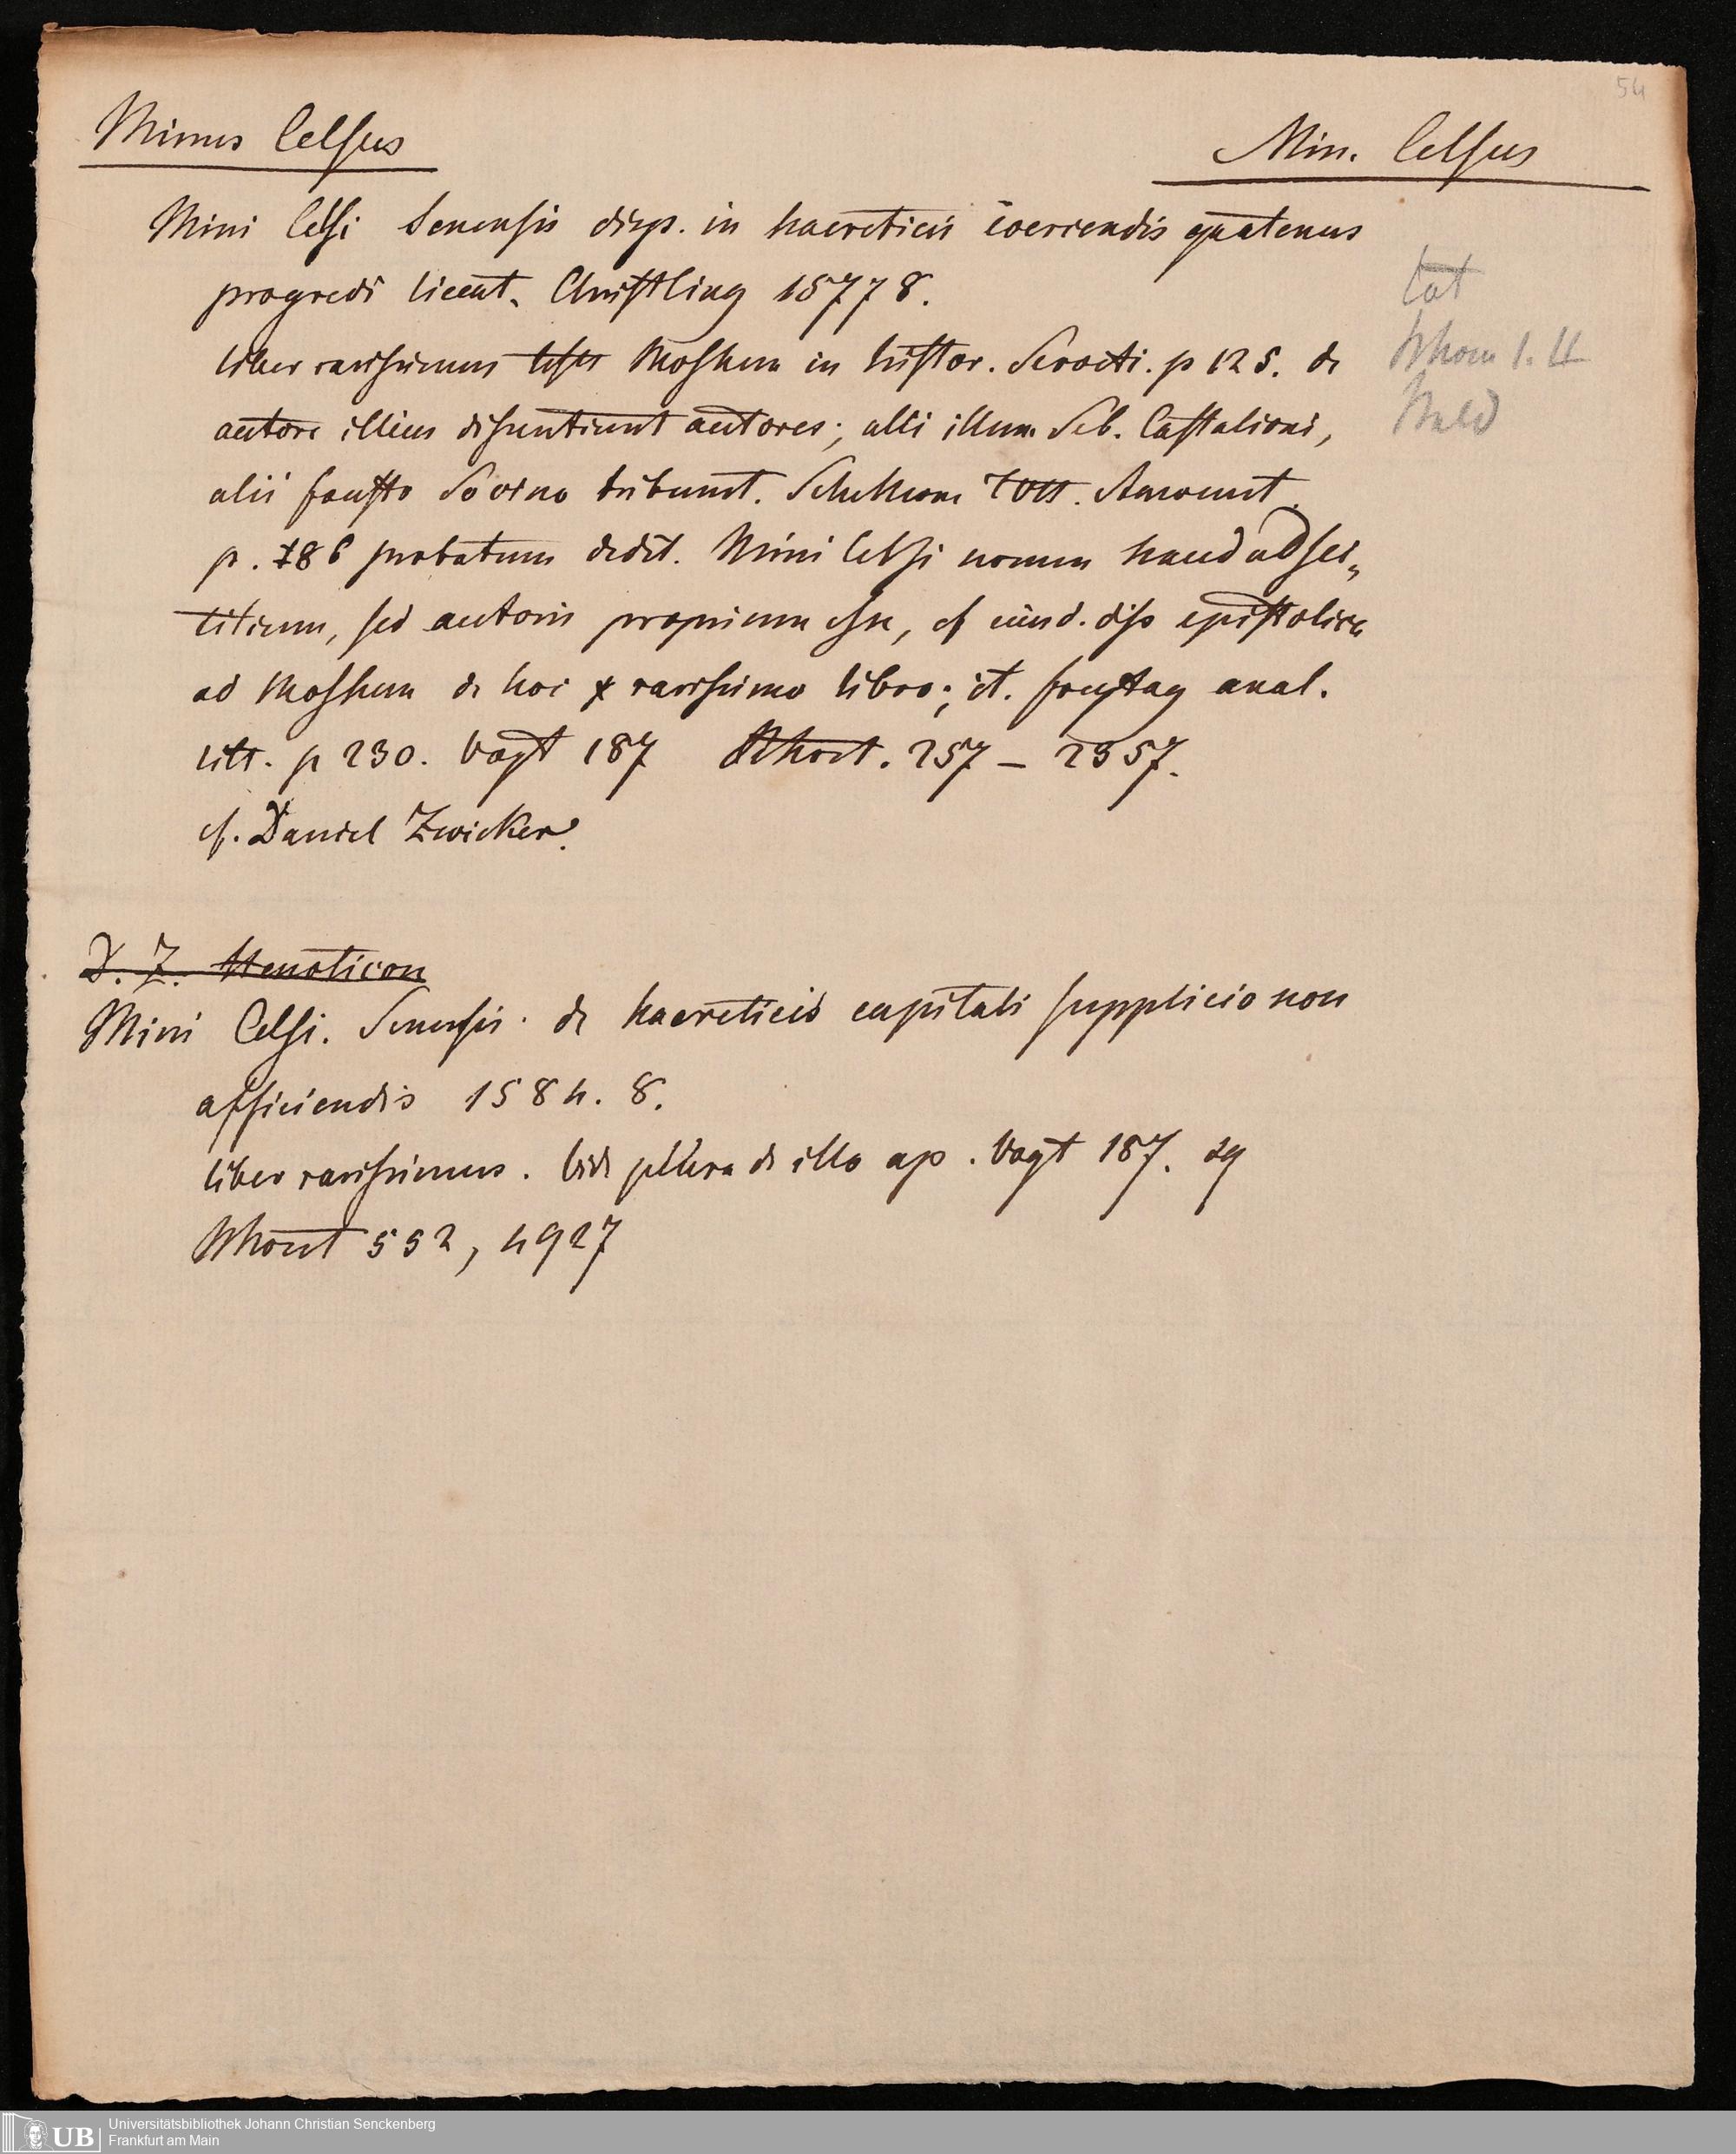 54
Minus Celsus
Min. Celsus
Mini Celsi Senensis disp. in haereticis coercendis quatenus
progredi liceat. Christling 1577 8.
lat
liber rarissimus Moshem in histor. Serveti. p 125. de
autore illius dissentiunt autores; alii illum Seb. Castalioni,
alii fausto Socino tribuunt. Schelhorn Amoenit.
p. 786 probatum dedit. Mini Celsi nomen haud adsci-
titium, sed autoris proprium esse, cf eiusd. diss epistolica
ad Moshem de hoc rarissimo libro; it. freytag anal.
litt. p 230. Vogt 187 257 – 2357.
cf. Daniel Zwicker.
D. Z. Henoticon
Mini Celsi. Senensis. de haereticis capitali supplicio non
afficiendis 1584. 8.
liber rarissimus. Vide plura de illo ap. Vogt 187. sq
552, 4927
UB Universitätsbibliothek Johann Christian Senckenberg
Frankfurt am Main